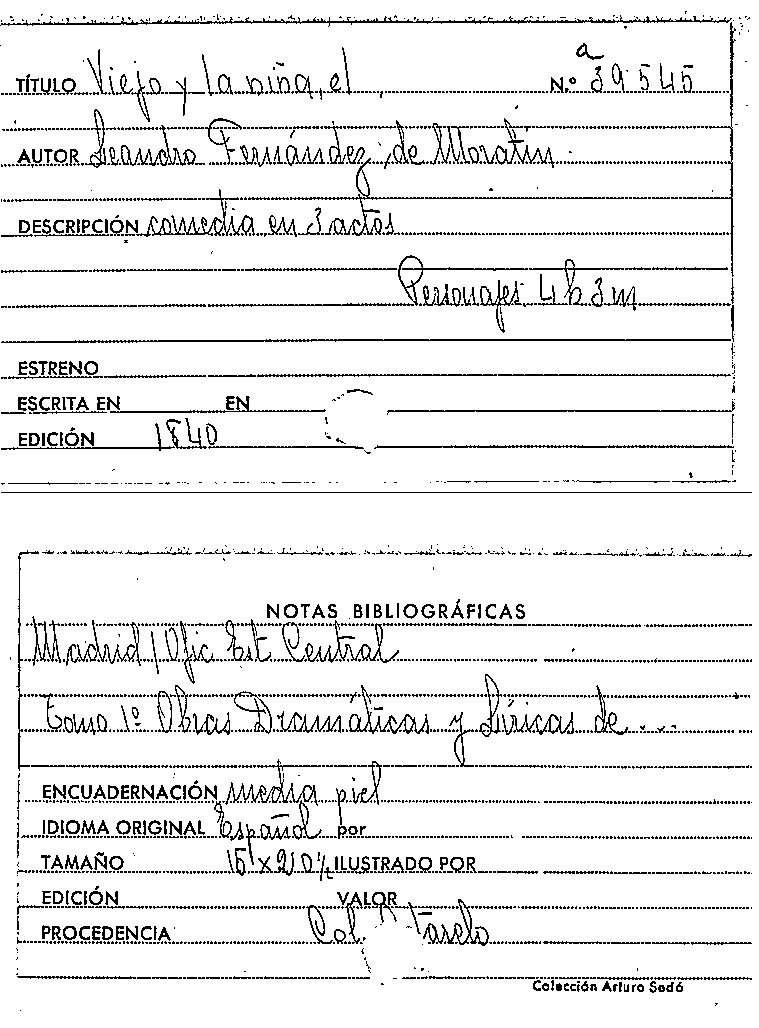 a
TÍTULO Viejo y la niña, el N.º 39545
AUTOR Leandro Fernández de Moratín
DESCRIPCIÓN comedia en 3 actos
Personajes 4 h 3 m
ESTRENO
ESCRITA EN EN
EDICIÓN 1840
NOTAS BIBLIOGRÁFICAS
Madrid / Ofic Est Central
Tomo 1º Obras Dramáticas y Líricas de ...
ENCUADERNACIÓN media piel
IDIOMA ORIGINAL Español por
TAMAÑO ILUSTRADO POR
EDICIÓN VALOR
PROCEDENCIA Col.
Colección Arturo Sedó